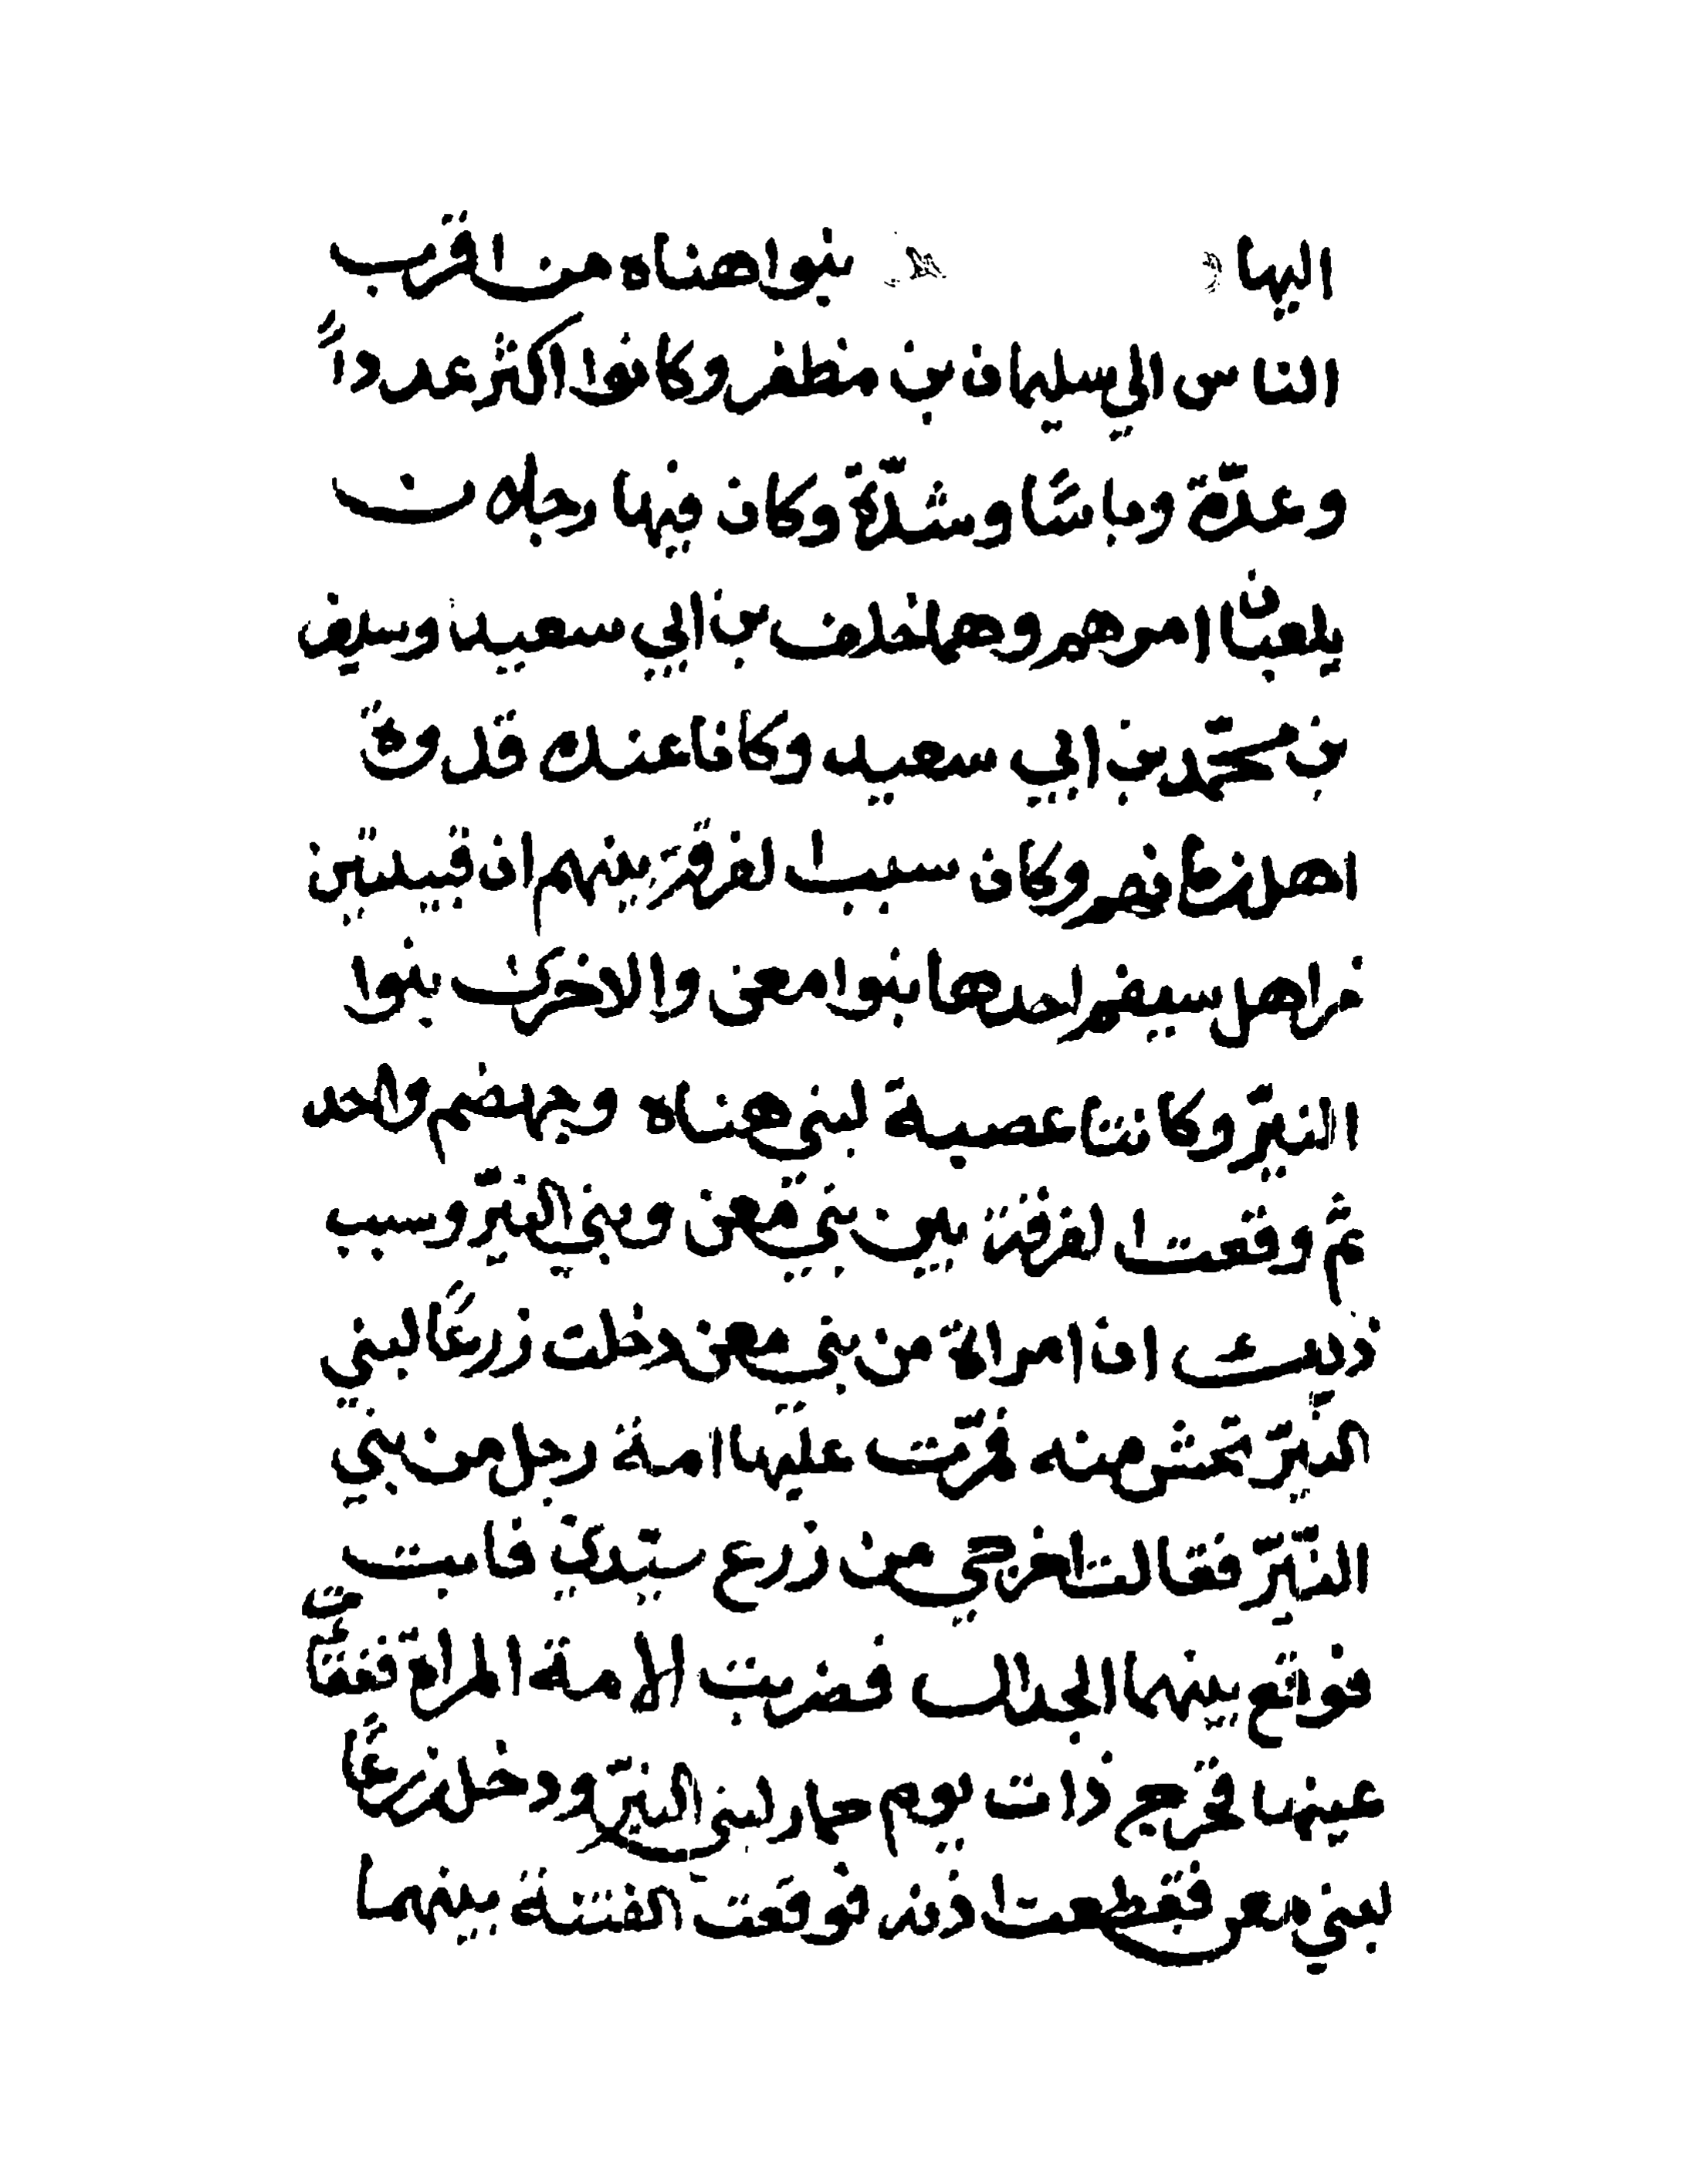 اليها بنوا هناه من اقرب
الناس الي سليمان بن مظفر وكانوا اكثر عدداً
وعدّة وباسًا وشدّة وكان فيها رجلان
يلعبان امرهم وهما خلف بن ابي سعيد وسيف
بن محمّد بن ابي سعيد وكانا عنده قدوةً
اهل زمانهم وكان سبب الفرقة بينهم ان قبيلتين
من اهل سيفم احدها بنوا معن والاخرى بنوا
النيّر وكانتا عصبة لبني هناه وجهضم واحد
ثم وقعت الفرقة بين بني معن وبني النيّر وسبب
ذلك ان امراة من بني معن دخلت زرعًا لبني
النيّر تحش منه فمرّت عليها امة رجل من بني
النيّر فقالت اخرجي من زرع سيّدي فابت
فوقع بينهما الجدال فضربت الامة المراة ففقأت
عينها فخرج ذات يوم حمار لبني النيّر ودخل زرعًا
لبني معن فقطعت اذنه فوقعت الفتنة بينهما